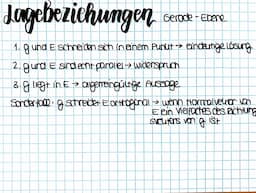 Lagebeziehungen Gerade - Ebene
1. g und E schneiden sich in einem Punkt → eindeutige Lösung
2. g und E sind echt parallel → Widerspruch
3. g liegt in E → allgemeingültige Aussage
Sonderfall: g schneidet E orthogonal → wenn Normalvektor von
E ein Vielfaches des Richtung
svektors von g ist